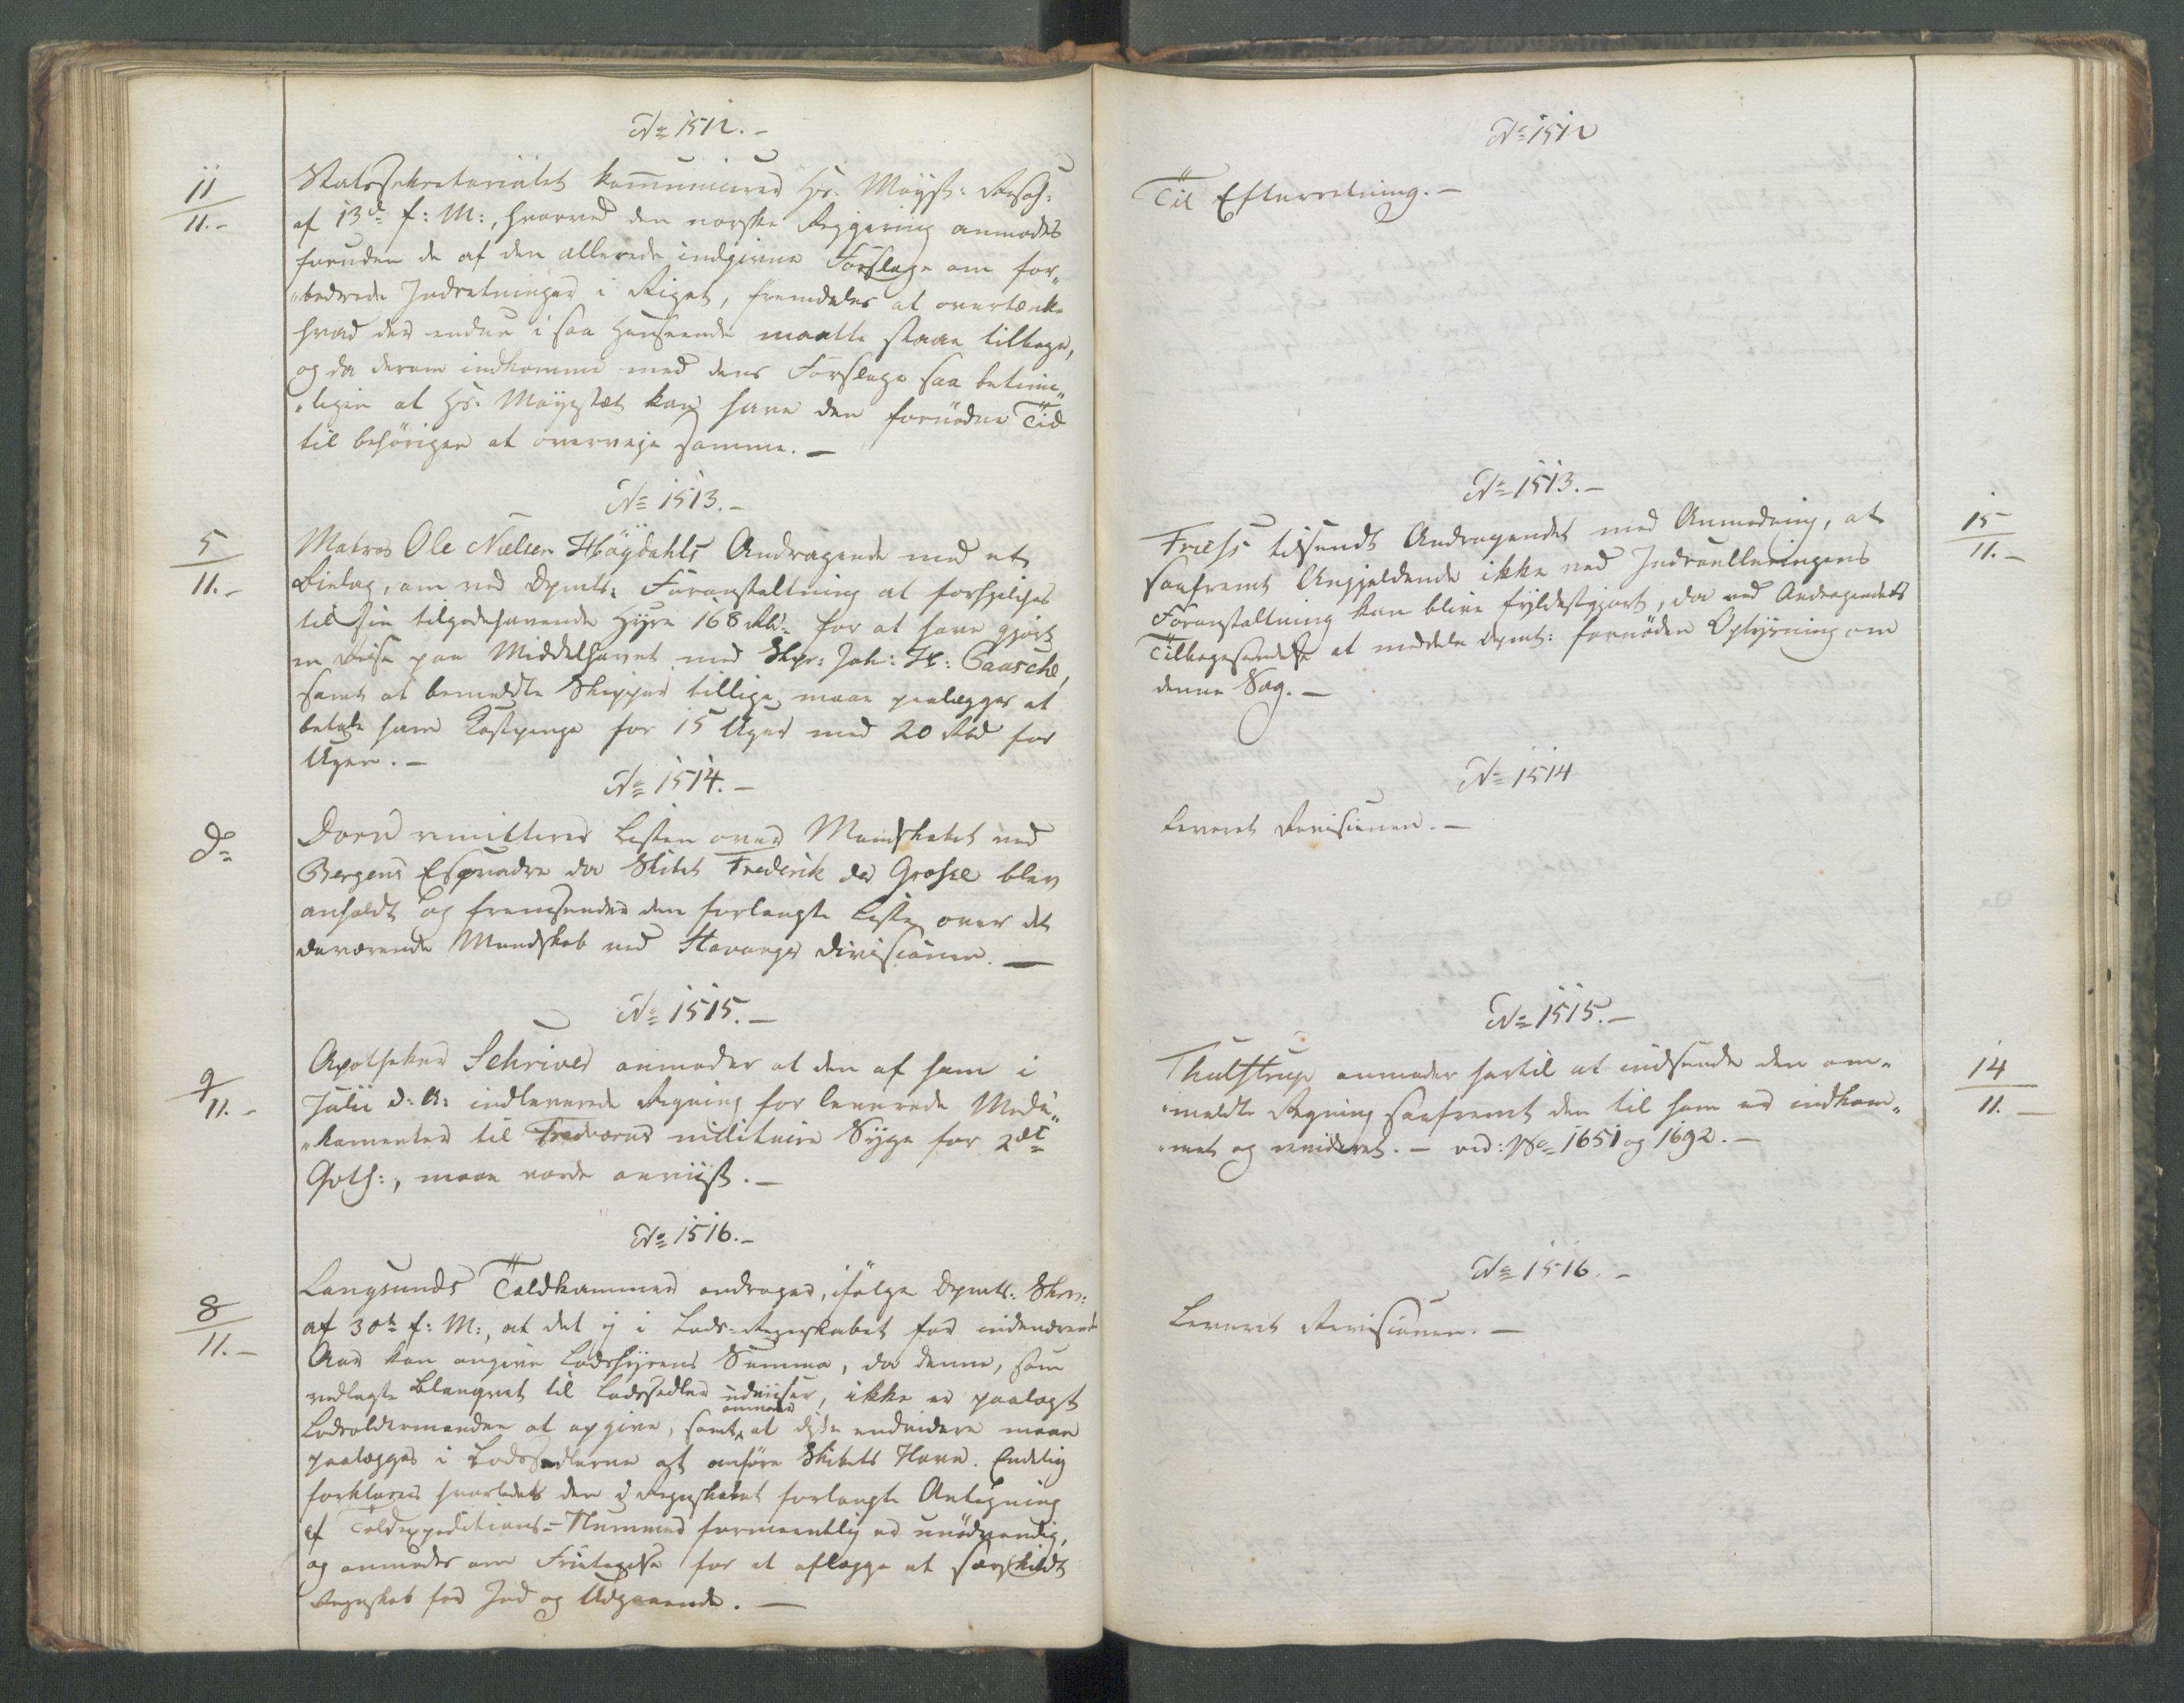 No 1512.-
11
11.-
Statssekretariatet kommunicerer Hs: Mayst: Resol:
af 13de f: M:, hvorved den norske Regjering anmodes
foruden de af den allerede indgivne Forslage om for„
„bedrede Indretninger i Riget, fremdeles at overtænke
hvad der endnu i saa Henseende maatte staae tilbage,
og da derom indkomme med dens Forslage saa betime„
„ligen at Hs: Mayestæt kan have den fornødne Tid
til behørigen at overveje samme. -
No 1513.-
5
11.-
Matros Ole Nielsen Høydahls Andragende med et
Bielag, om ved Dpmts: Foranstaltning at forhjelpes
til sin tilgodehavende Hyre 168 Rbd for at have gjort
en Reise paa Middelhavet med Skpr: Joh: H: Gaasche,
samt at bemeldte Skipper tillige maae paalægges at
betale ham Kostpenge for 15 Uger med 20 Rbd for
Ugen. -
No 1514. -
do
Dorn remitterer Listen over Mandskabet ved
Bergens Esquadre da Skibet Frederik der Grosse blev
anholdt og fremsender den forlangte Liste over det
daværende Mandskab ved Stavanger Divisionen. -
No 1515. -
9
11.-
Apotheker Schriver anmoder at den af ham i
Julii d: A: indleverede Regning for leverede Medi„
„kamenter til Fredværns militaire Syge for 2det
Qvth:, maae vorde anviist. -
No 1516.-
8
11.-
Langsunds Toldkammer andrager, ifølge Dpmts: Skriv:
af 30te f: M:, at det ej i Lods-Regnskabet for indeværende
Aar kan angive Lodshyrens Summa, da denne, som
vedlagte Blanqvet til Lodssedler udviser, ikke er paalagt
Lodsoldermanden at opgive, samt anmoder at disse endvidere maae
paalægges i Lodssedlerne at anføre Skibets Navn. Endelig
forklares hvorledes den i Regnskabet forlangte Antegning
af Toldexpeditions-Nummer formeentlig er unødvendig,
og anmodes om Fritagelse for at aflægge et særskildt
Regnskab for Ind og Udgaaende. -
No 1512
Til Efterretning. -
No 1513. -
15
11. -
Friess tilsendt Andragendet med Anmodning, at
saafremt Angjeldende ikke ved Indroulleringens
Foranstaltning kan blive fyldestgjort, da ved Andragendets
Tilbagesendelse at meddele Dpmt: fornøden Oplysning om
denne Sag. -
No 1514
Leveret Revisionen. -
No 1515. -
14
11. -
Thulstrup anmodes hertil at indsende den om„
„meldte Regning saafremt den til ham er indkom„
„met og revideret. - vid: No 1651 og 1692. -
No 1516. -
Leveret Revisionen. -